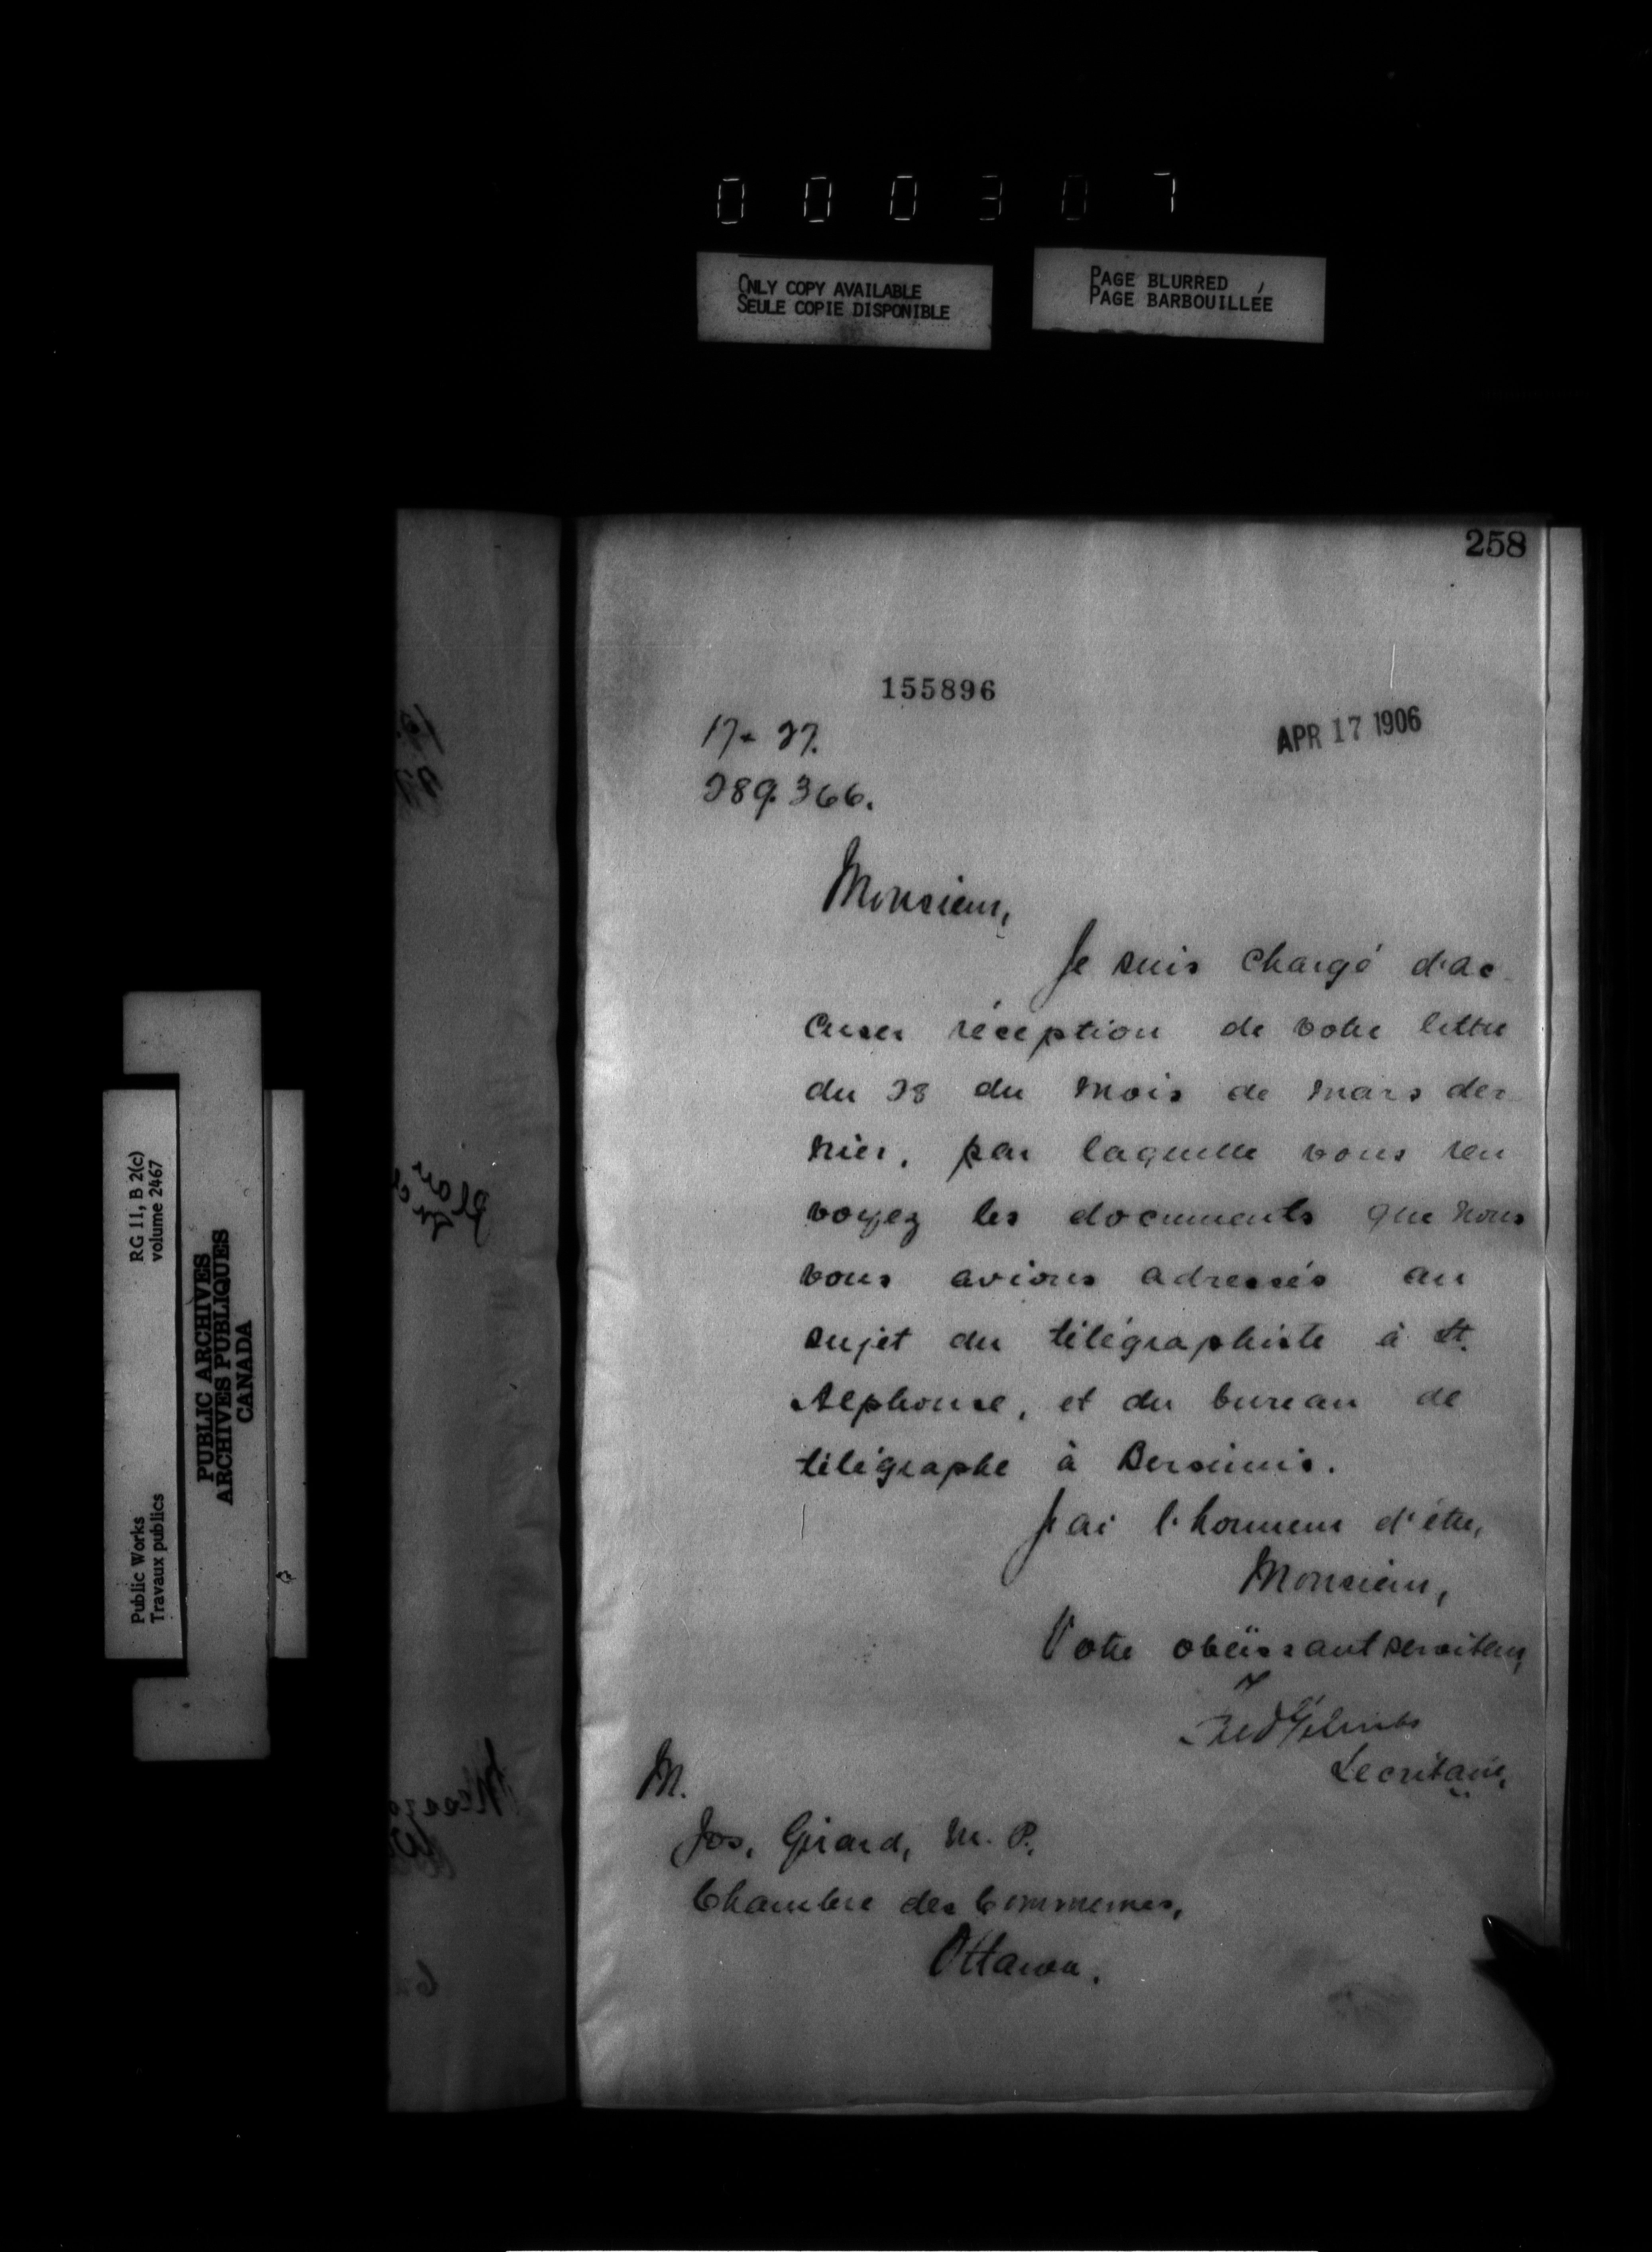 000307
ONLY COPY AVAILABLE
SEULE COPIE DISPONIBLE
PAGE BLURRED
PAGE BARBOUILLÉE
Public Works
Travaux publics
RG 11, B 2(c)
volume 2467
PUBLIC ARCHIVES
ARCHIVES PUBLIQUES
CANADA
258
155896
APR 17 1906
17- 27.
289.366.
Monsieur,
Je suis chargé d'ac-
cuser réception de votre lettre
du 28 du mois de mars der-
nier, par laquelle vous ren
voyez les documents que nous
vous avions adressés au
sujet du télégraphiste à St.
Alphonse, et du bureau de
télégraphe à Bersimis.
J'ai l'honneur d'être,
Monsieur,
Votre obéissant serviteur,
Fred Gélinas
Secrétaire,
M.
Jos. Girard, M. P.,
Chambre des Communes,
Ottawa.